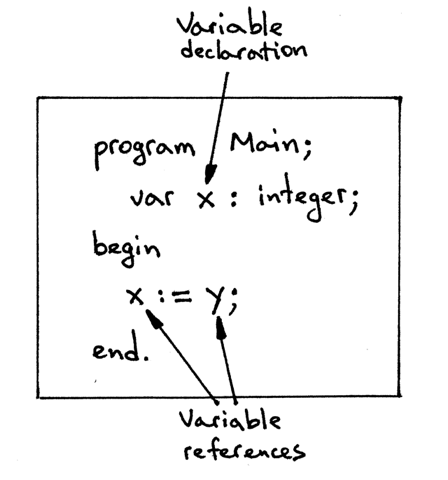 Variable
declaration
program Main;
var x : integer;
begin
x := y;
end.
Variable
references